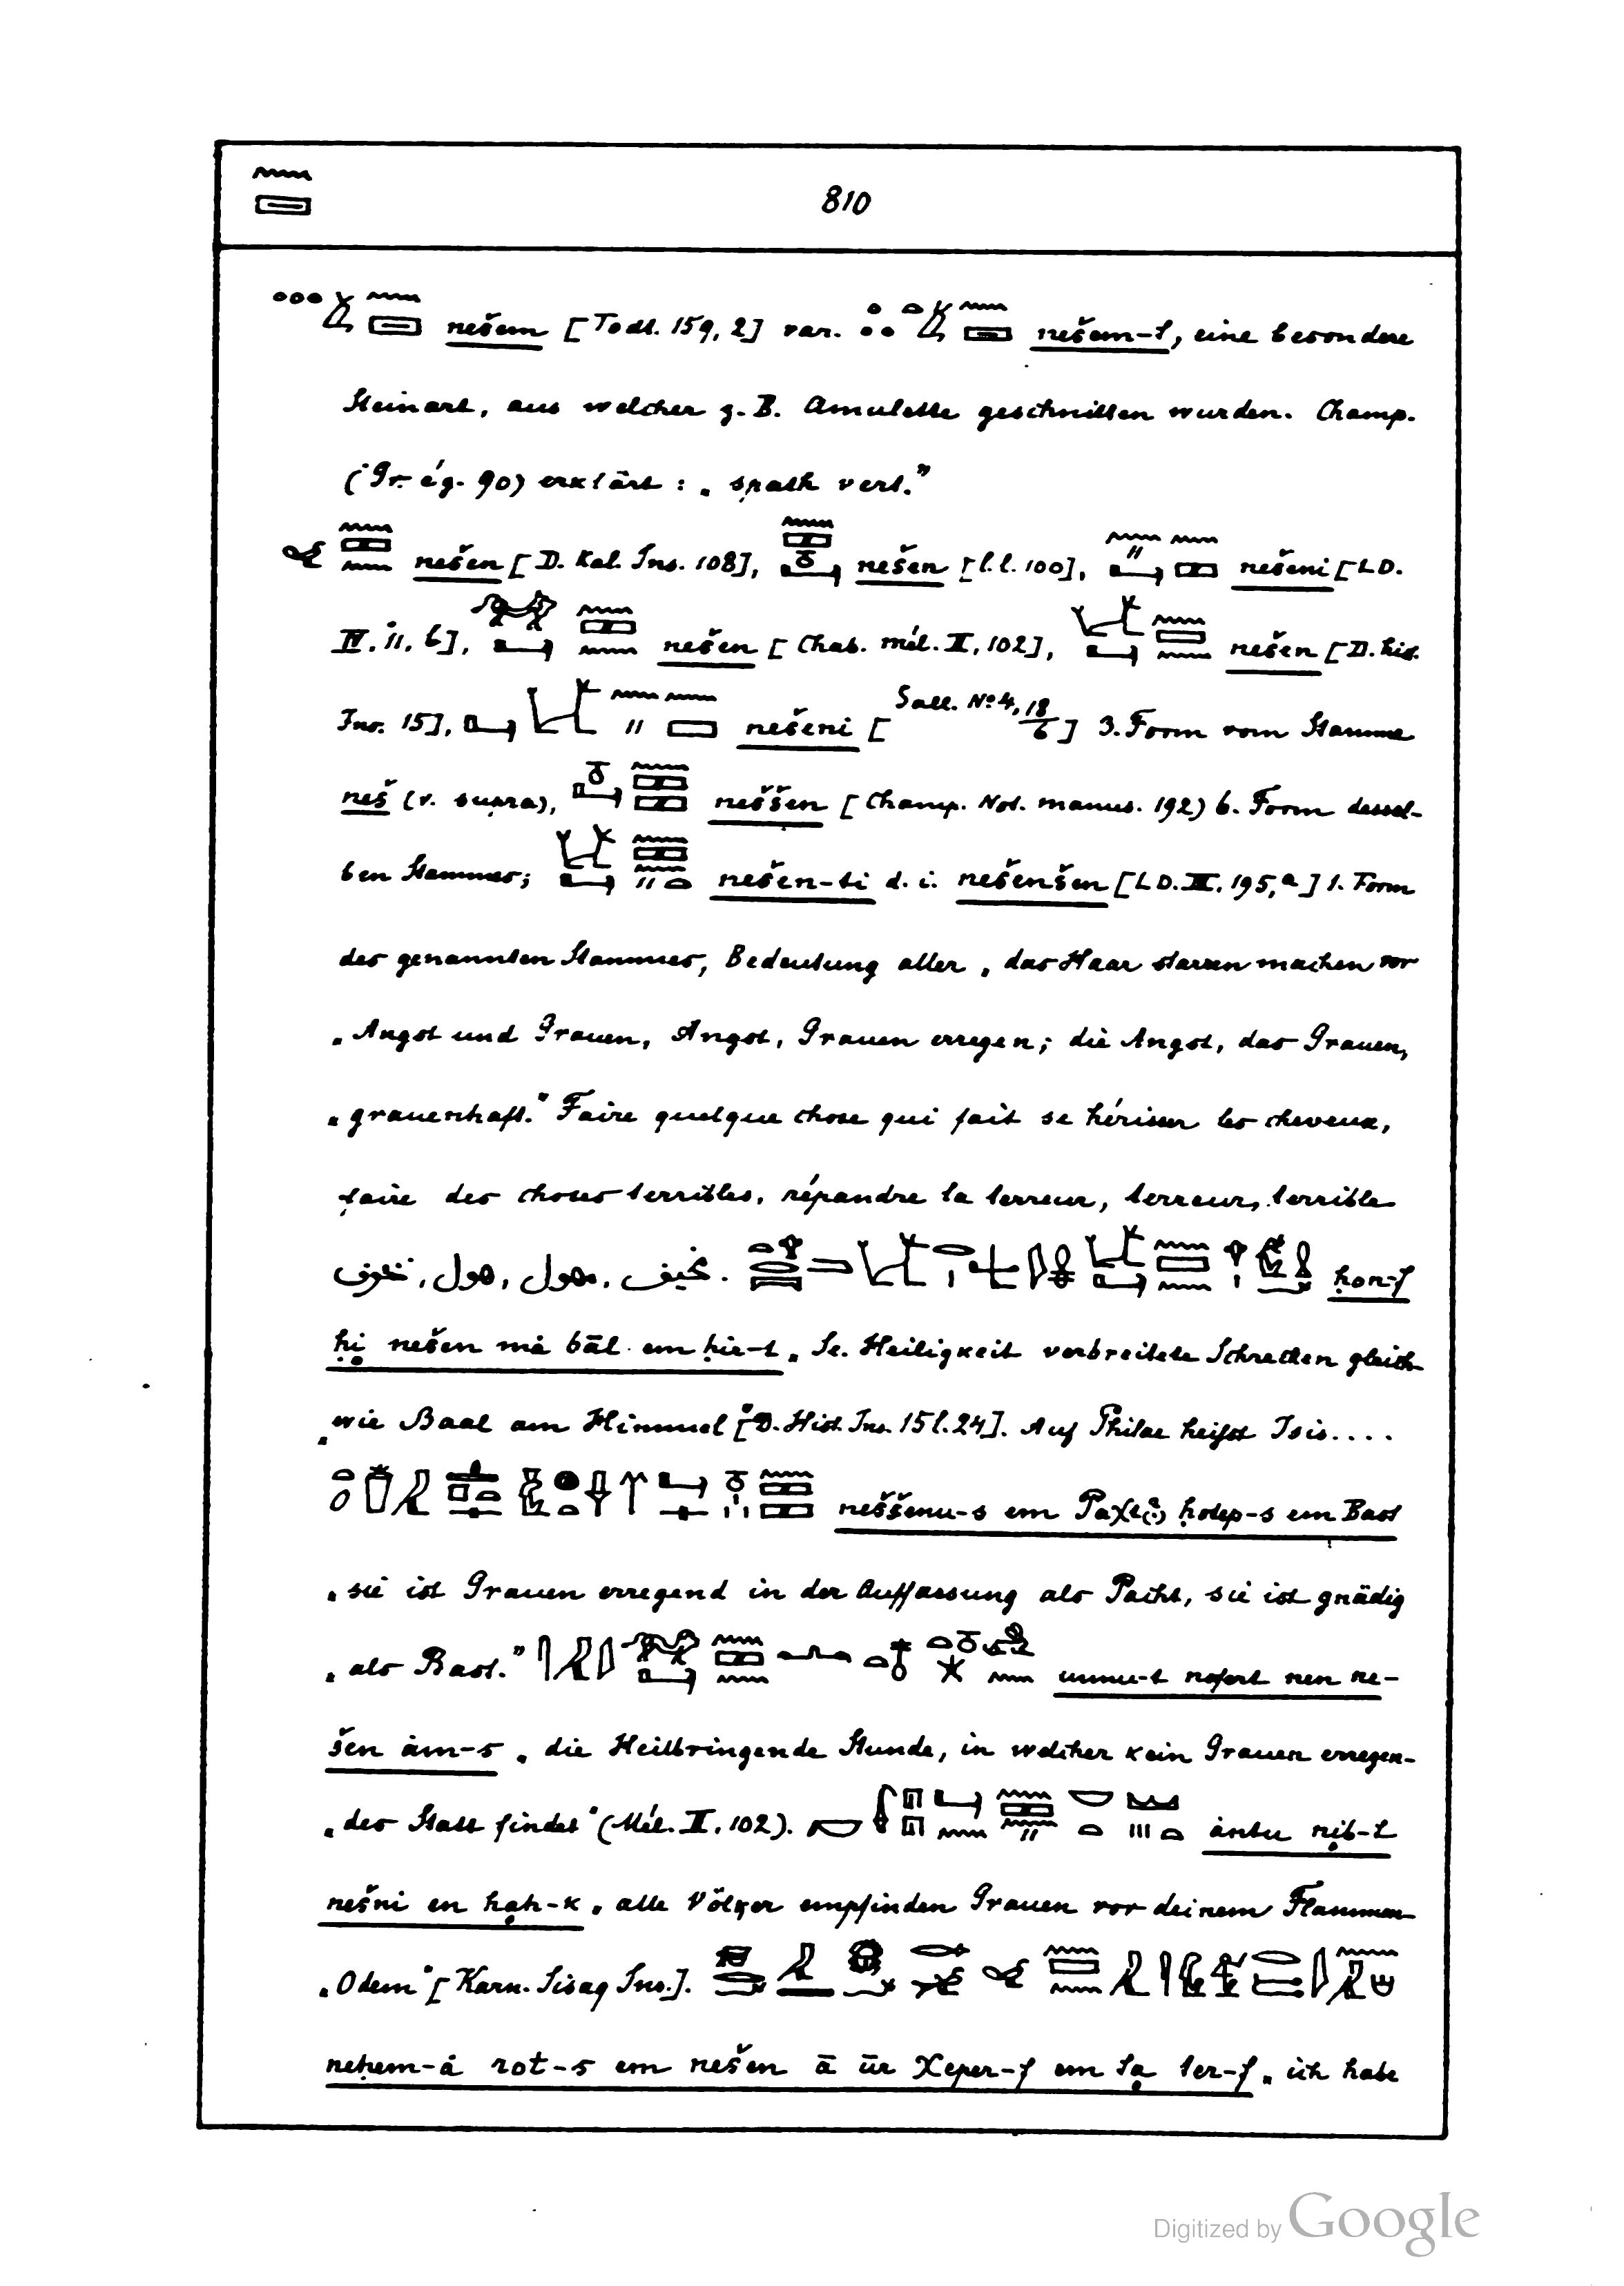 810
nešem [Todt. 159, 2] var. nešem-t, eine besondere
Steinart, aus welcher z. B. Amulette geschnitten wurden. Champ.
(Gr. ég. 90) erklärt: „spath vert.”
nešen [D. Kal. Ins. 108], nešen [l. l. 100], nešeni [LD.
IV. 11, b], nešen [Chab. mél. II, 102], nešen [D. hist.
Ins. 15], nešeni [Sall. No 4, 18/6] 3. Form vom Stamme
neš (v. supra), neššen [Champ. Not. manus. 192) 6. Form dessel-
ben Stammes; nešen-ti d. i. nešenšen [LD. III. 195, a] 1. Form
des genannten Stammes, Bedeutung aller „das Haar starren machen vor
„Angst und Grauen, Angst, Grauen erregen; die Angst, das Grauen,
„grauenhaft.” Faire quelque chose qui fait se hérisser les cheveux,
faire des choses terribles, répandre la terreur, terreur, terrible
تخويف, هول, مهول, مخيف. ḥon-f
ḥi nešen må bāl em ḥir-t „Se. Heiligkeit verbreitete Schrecken gleich
„wie Baal am Himmel [D. Hist. Ins. 15 l. 24]. Auf Philae heißt Isis....
neššenu-s em Paχt(?) ḥotep-s em Bast
„sie ist Grauen erregend in der Auffassung als Pacht, sie ist gnädig
„als Bast.” unnu-t nofert nen ne-
šen åm-s „die Heilbringende Stunde, in welcher kein Grauen erregen-
„des Statt findet” (Mél. II, 102). åntu nib-t
nešni en hah-k „alle Völker empfinden Grauen vor deinem Flammen-
„Odem” [Karn. Sisaq Ins.].
neḥem-å rot-s em nešen ā ūr χeper-f em ta ter-f „ich habe
Digitized by Google